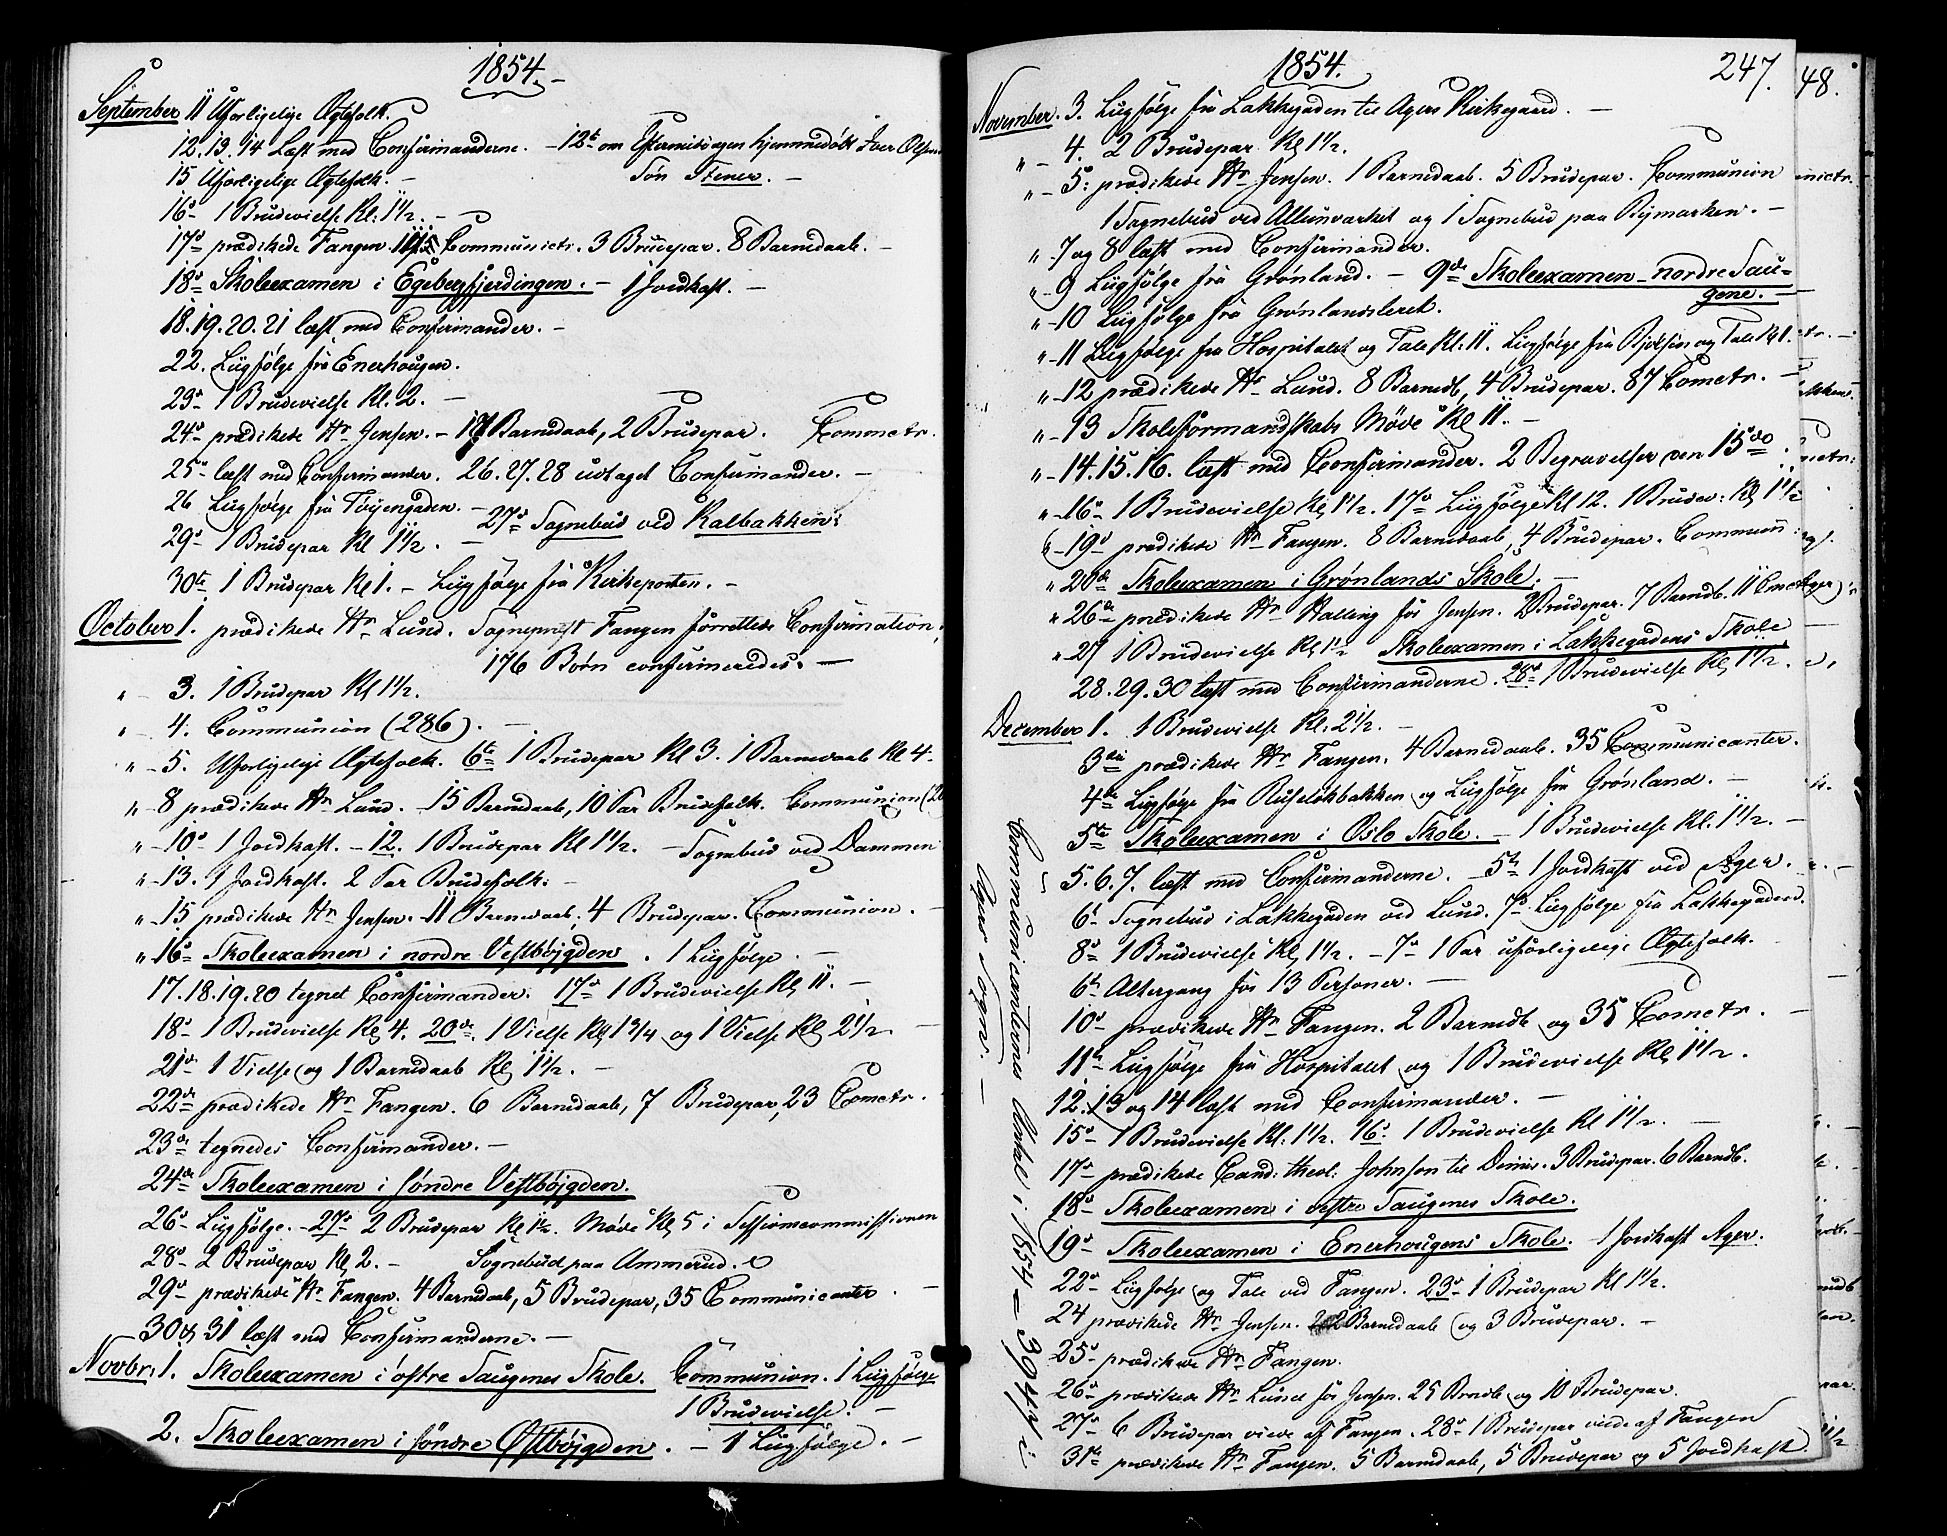 1854.
September 11 Uforligelige Ægtefolk.
12. 13. 14 Læst med Confirmanderne. – 12te om Eftermiddagen hjemmedøbt Iver Olsens
15 Uforligelige Ægtefolk. – Søn Stener. –
16de 1 Brudevielse Kl: 1 1/2. –
17de prædikede Fangen Communictr. 3 Brudepar. 8 Barnedaab. –
18de Skoleexamen i Egebergfjerdingen. – 1 Jordkast. –
18. 19. 20. 21 læst med Confirmander. –
22. Liigfølge frå Enerhougen.
23de 1 Brudevielse Kl. 2. –
24de prædikede Hr Jensen. – 17 Barnedaab, 2 Brudepar. Commctr.
25de læst med Confirmander. 26. 27. 28 udtaget Confirmander. –
26 Liigfølge fra Tøyengaden. –
27de Sognebud ved Kalbakken.
29de 1 Brudepar Kl 1 1/2. –
30te 1 Brudepar Kl 1. – Liigfølge fra Kirkeporten. –
October 1. prædikede Hr Lund. Sognepræst Fangen forrettede Confirmation,
176 Børn confirmeredes. –
" – 3. 1 Brudepar Kl 1 1/2.
" – 4. Communion (286). –
" – 5. Uforligelige Ægtefolk. 6te 1 Brudepar Kl 3. 1 Barnedaab Kl 4.
" – 8 prædikede Hr Lund. – 15 Barnedaab, 10 Par Brudefolk. Communion
" – 10de 1 Jordkast. – 12. 1 Brudepar Kl 1 1/2. – Sognebud ved Dammen
" – 13. 1 Jordkast. 2 Par Brudefolk. –
" – 15 prædikede Hr Jensen. – 11 Barnedaab, 4 Brudepar. Communion. –
" – 16de Skoleexamen i nordre Vestbøjgden. 1 Liigfølge. –
17. 18. 19. 20 tegnet Confirmander. 17de 1 Brudevielse Kl 11. –
18de 1 Brudevielse Kl 4. 20de. 1 Vielse Kl 1 3/4 og 1 Vielse Kl 2 1/2. –
21de 1 Vielse og 1 Barnedaab Kl 1 1/2. –
22de prædikede Hr Fangen. 6 Barnedaab, 7 Brudepar, 23 Comctr.
23de tegnedes Confirmander. –
24de Skoleexamen i søndre Vestbøjgden.
26de Liigfølge. – 27de 2 Brudepar Kl 1 1/2. Møde Kl 5 i Sessionscommissionen
28de 2 Brudepar Kl 2. – Sognebud paa Ammerud.
29de prædikede Hr Fangen. 4 Barnedaab, 5 Brudepar, 35 Communicanter. –
30 & 31 læst med Confirmanderne. –
Novbr. 1. Skoleexamen i østre Taugenes Skole. Communion. 1 Liigfølge
1 Brudevielse. –
2. Skoleexamen i søndre Østbøjgden. – 1 Liigfølge. –
1854. 247.
November. 3. Liigfølge fra Lakkegaden til Agers Kirkegaard. –
" – 4. 2 Brudepar Kl 1 1/2.
" – 5: prædikede Hr Jensen. 1 Barnedaab. 5 Brudepar. Communion
1 Sognebud ved Allunværket og 1 Sognebud paa Bymarken. –
" 7 og 8 læst med Confirmander.
" – 9 Liigfølge fra Grønland. – 9de Skoleexamen – nordre Tau-
gene. –
" – 10 Liigfølge fra Grønlandsleret.
" – 11 Liigfølge fra Hospitalet og Tale Kl: 11. Liigfølge fra Bjølsin og Tale Kl 1.
" – 12 prædikede Hr Lund. 8 Barnedb, 4 Brudepar. 87 Comctr. –
" – 13 Skoleformandskabs Møde Kl 11. –
" – 14. 15. 16. læst med Confirmander. 2 Begravelser den 15de.
" – 16de 1 Brudevielse Kl 1 1/2. 17de Liigfølge Kl 12. 1 Brudev: Kl 1 1/2
" – 19de prædikede Hr Fangen. 8 Barnedaab, 4 Brudepar. Commun
" 20de Skoleexamen i Grønlands Skole. –
" 26de prædikede Hr Halling for Jensen. 2 Brudepar. 7 Barndb. 11
" 27 1 Brudevielse Kl 1 1/2 Skoleexamen i Lakkegadens Skole
28. 29. 30 læst med Confirmanderne. 28de 1 Brudevielse Kl 1 1/2.
December 1. 1 Brudevielse Kl: 2 1/2. –
3die prædikede Hr Fangen. 4 Barnedaab. 35 Communicanter.
4de Liigfølge fra Ruseløkbakken og Liigfølge fra Grønland. –
5te Skoleexamen i Oslo Skole. – 1 Brudevielse Kl. 1 1/2. –
5. 6. 7. læst med Confirmanderne. – 5te 1 Jordkast ved Ager.
6te Sognebud i Lakkegaden ved Lund. 7de Liigfølge fra Lakkegaden.
8de 1 Brudevielse Kl 1 1/2. – 7de 1 Par uforligelige Ægtefolk.
6te Altergang for 13 Personer. –
10de prædikede Hr Fangen. 2 Barnedb og 35 Comctr. –
11te Liigfølge fra Hospitalet og 1 Brudevielse Kl 1 1/2.
12. 13 og 14 læst med Confirmander. –
15de 1 Brudevielse Kl: 1 1/2. 16de 1 Brudevielse Kl 1 1/2. –
17de prædikede Cand: theol: Johnson til Dimis. 3 Brudepar. 6 Barndb.
18de Skoleexamen i vestre Taugenes Skole.
19de Skoleexamen i Enerhougens Skole. – 1 Jordkast Ager.
22de Liigfølge og Tale ved Fangen. 23de 1 Brudepar Kl 1 1/2.
24 prædikede Hr Jensen. 2 Barnedaab og 3 Brudepar. –
25de prædikede Hr Fangen.
26de prædikede Hr Lund for Jensen. 25 Brndb og 10 Brudepar.
27de 6 Brudepar viede af Fangen. 28de 1 Brudepar viede af Fangen
31te prædikede Hr Fangen. 5 Barnedaab, 5 Brudepar og 5 Jordkast.
Communicanternes Antal i 1854 = 3944 i
Agers Sogn. –
48.